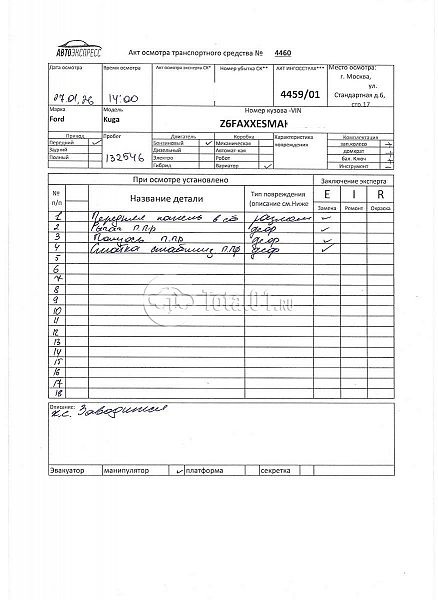 АВТОЭКСПРЕСС
Акт осмотра транспортного средства № 4460
Дата осмотра Время осмотра Акт осмотра эксперта СК* Номер убытка СК** АКТ ИНГОССТРАХ*** Место осмотра:
г. Москва,
ул.
27.01.26 14:00 4459/01 Стандартная д.6,
стр.17
Марка Модель Номер кузова -VIN
Ford Kuga Z6FAXXESMAH
Привод Пробег Двигатель Коробка Характеристика Комплектация
Передний ✓ Бензиновый ✓ Механическая повреждения: зап.колесо ✓
Задний Дизельный Автомат-кая домкрат
Полный 132546 Электро Робот бал. Ключ +
Гибрид Вариатор ✓ Инструмент
При осмотре установлено Заключение эксперта
№ п/п Название детали Тип повреждения (описание см.Ниже E I R
Замена Ремонт Окраска
1 Передняя панель в сб ✓
2 П.Пр деф ✓
3 п.пр деф ✓
4 п.пр деф ✓
5
6
7
8
9
10
11
12
13
14
15
16
17
18
Total01.ru
Описание:
Заводится
Эвакуатор манипулятор ✓ платформа секретка